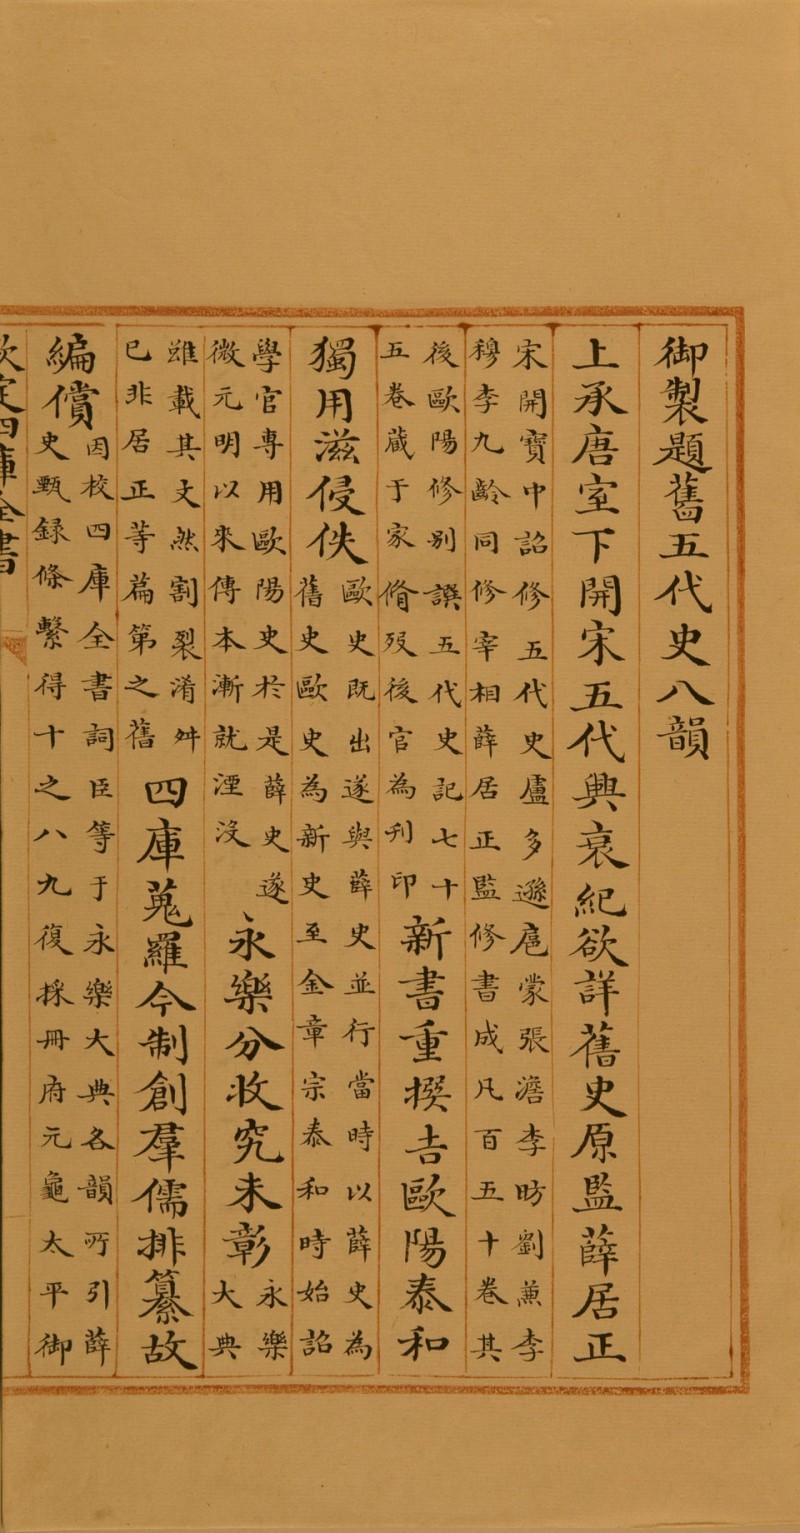 御製題舊五代史八韻
上承唐室下開宋五代興衰紀欲詳舊史原監薛居正
宋開寶中詔修五代史盧多遜扈蒙張澹李昉劉兼李
穆李九齡同修宰相薛居正監修書成凡百五十卷其
後歐陽修別譔五代史記七十
五卷藏于家脩歿後官為刊印
新書重撰吉歐陽泰和
獨用滋侵佚
歐史既出遂與薛史並行當時以薛史為
舊史歐史為新史至金章宗泰和時始詔
學官專用歐陽史於是薛史遂
微元明以來傳本漸就湮沒
永樂分收究未彰
永樂
大典
雖載其文然割裂淆舛
已非居正等篇第之舊
四庫蒐羅今制創羣儒排纂故
編償
因校四庫全書詞臣等于永樂大典各韻所引薛
史甄録條繫得十之八九復採冊府元龜太平御
欽定四庫全書